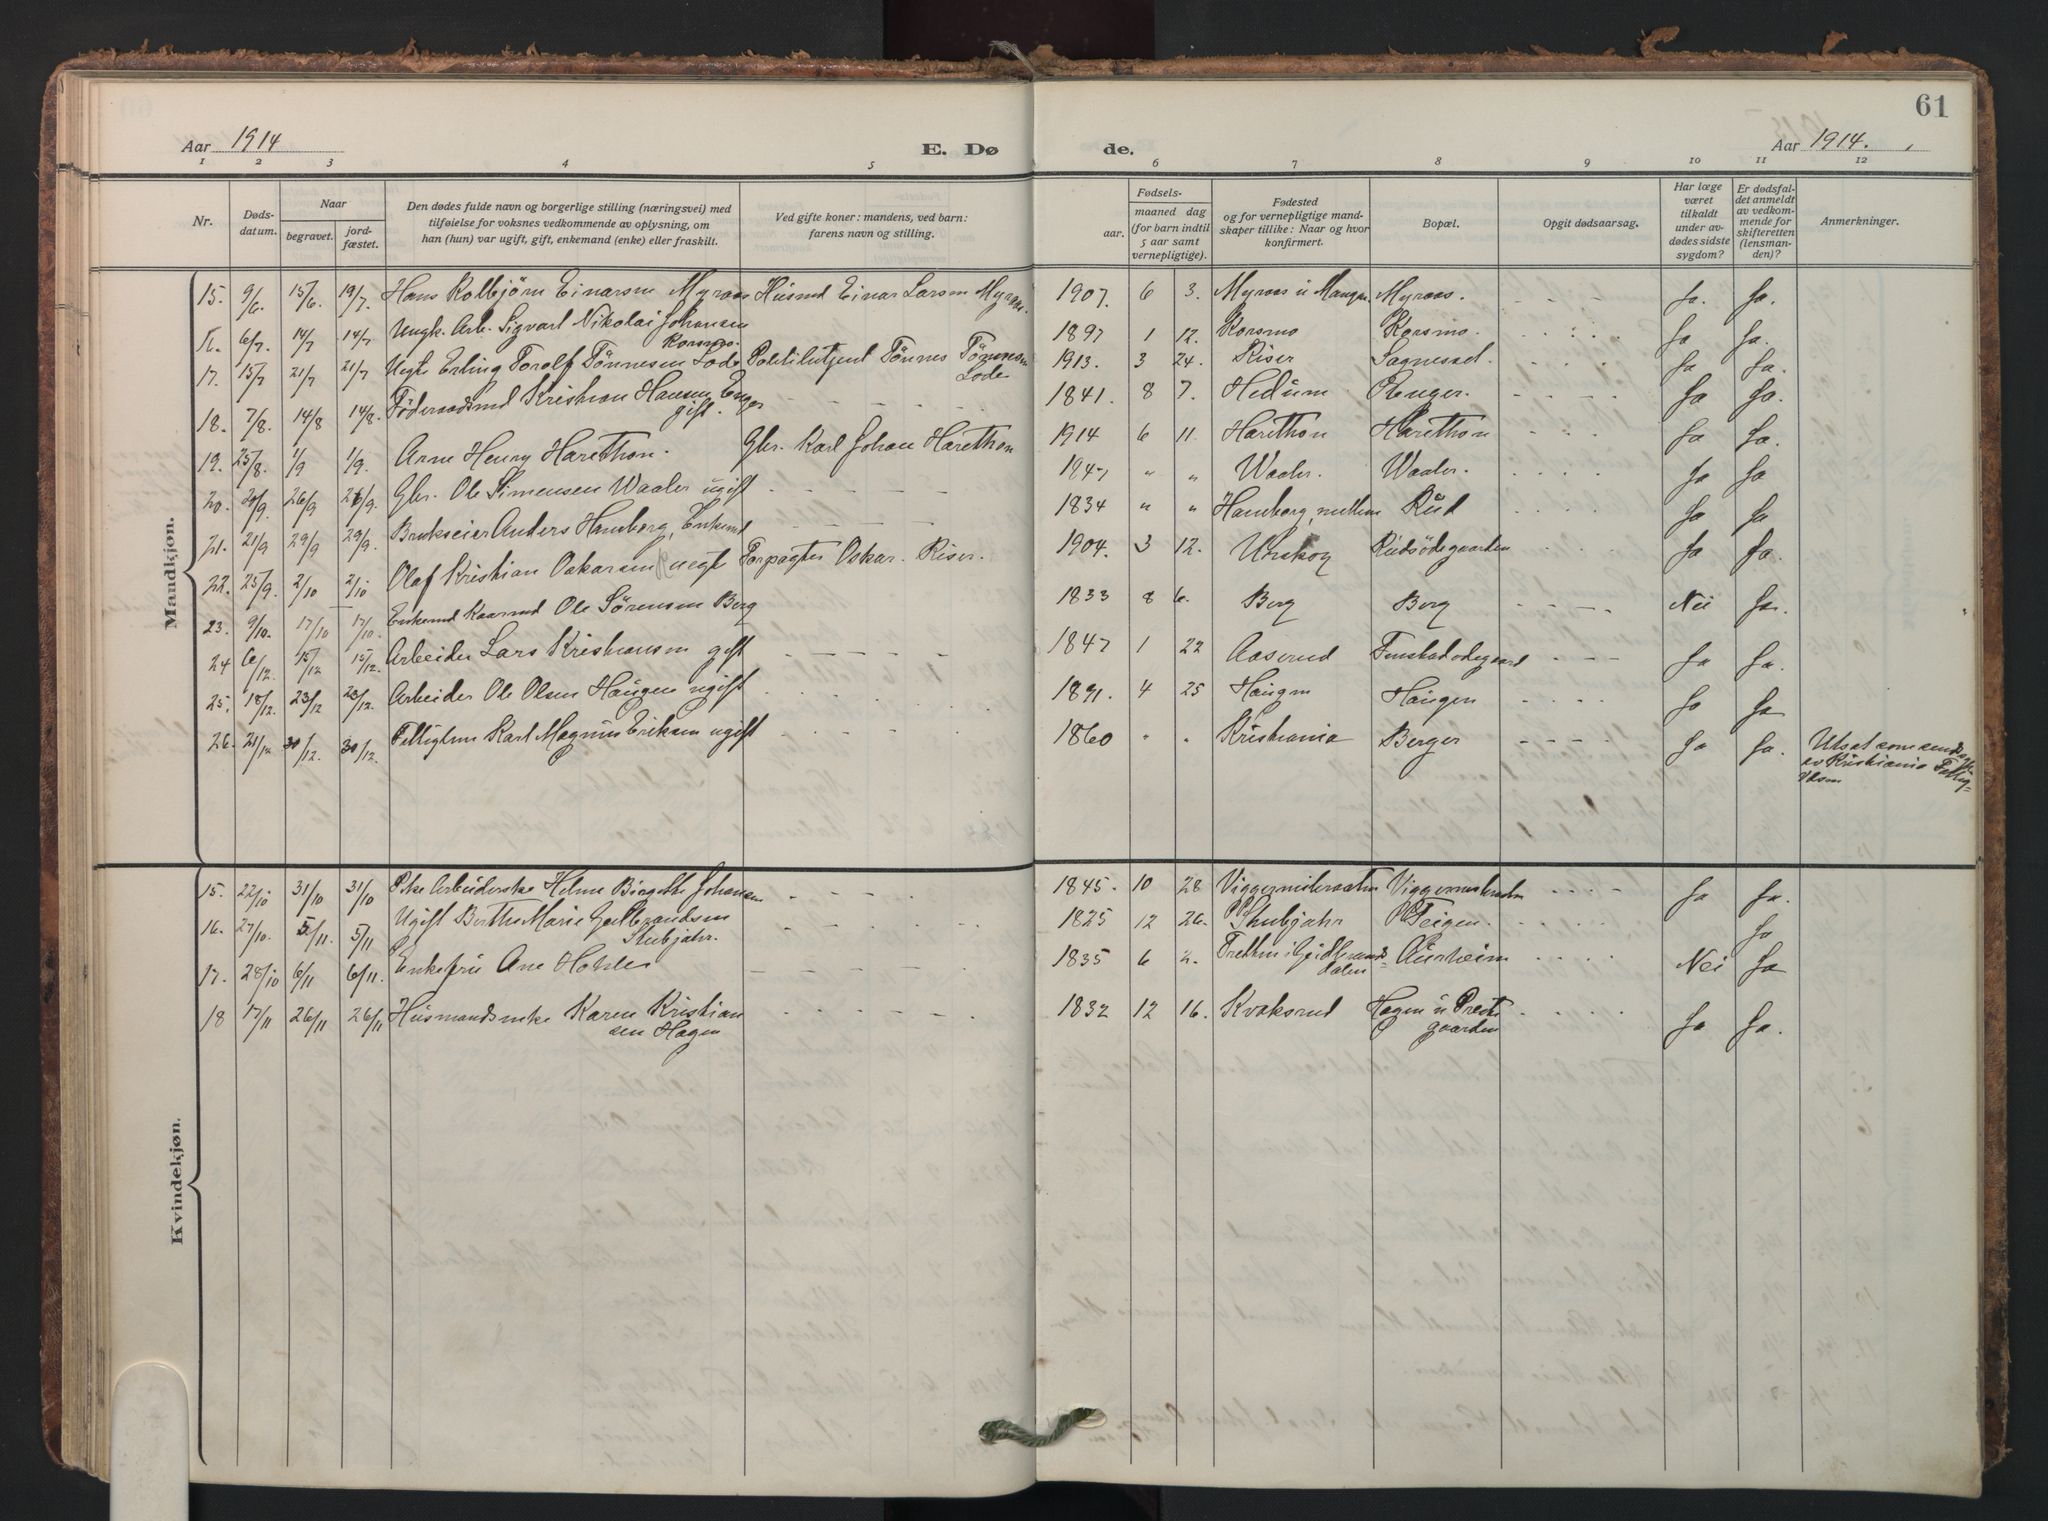 61
Aar 1914
E. Dø
de.
Aar 1914.
1 2 3 4 5 6 7 8 9 10 11 12
Nr.
Døds-
datum.
Naar
begravet.
jord-
fæstet.
Den dødes fulde navn og borgerlige stilling (næringsvei) med
tilføielse for voksnes vedkommende av oplysning, om
han (hun) var ugift, gift, enkemand (enke) eller fraskilt.
Ved gifte koner: mandens, ved barn:
farens navn og stilling.
Fødsels-
aar.
maaned dag
(for barn indtil
5 aar samt
vernepligtige).
Fødested
og for vernepligtige mand-
skaper tillike: Naar og hvor
konfirmert.
Bopæl.
Opgit dødsaarsag.
Har læge
været
tilkaldt
under av-
dødes sidste
sygdom?
Er dødsfal-
det anmeldt
av vedkom-
mende for
skifteretten
(lensman-
den)?
Anmerkninger.
Mandkjøn.
15. 9/6. 15/6. 19/7. Hans Kolbjörn Einarsen Myraas Husmd Einar Larsen Myraas. 1907. 6 3. Myraas u Mangen Myraas. Ja. Ja.
16. 6/7. 14/7 14/7 Ungk. Arb. Sigvart Nikolai Johansen
Korsmo. 1897 1 12. Korsmo Korsmo. Ja Ja.
17. 15/7 21/7 21/7 Uegte Erling Torolf Tönnesen Lode Politibetjent Tönnes Tönnesen
Lode 1913. 3 24. Riser Ja Ja.
18. 7/8. 14/8 14/8. Föderaadsmd Kristian Hansen Enger
gift. 1841. 8 7. Hedum Enger. Ja Ja.
19. 25/8. 1/9 1/9. Arne Henry Harethon. Gbr. Karl Johan Harethon 1914 6 11. Harethon Harethon Ja Ja.
20. 20/9. 26/9 26/9 Gbr. Ole Simensen Waaler ugift 1847 " " Waaler. Waaler. Ja Ja
21. 21/9 29/9 29/9. Brukseier Anders Hamborg, Enkemd 1834 " " Hamborg, Rud Ja Ja
22. 25/9. 2/10 2/10 Olaf Kristian Oskarsen uegte Forpagter Oskar Riser. 1904. 3 12. Urskog Rudsödegaarden Ja Ja.
23. 9/10. 17/10 17/10. Enkemd Kaarmd Ole Sörensen Berg 1833 8 6. Berg Berg Nei Ja.
24 6/12. 15/12 15/12. Arbeider Lars Kristiansen gift 1847 1 22 Aaserud Finstadødegaard Ja Ja.
25. 18/12. 23/12 23/12. Arbeider Ole Olsen Haugen ugift 1891. 4 25 Haugen Haugen Ja Ja
26. 21/12 30/12. 30/12. Fattiglem Karl Magnus Eriksen ugift 1860 " " Kristiania Berger Ja Ja. Utsat
av Kristiania Fattig-
Kvindekjøn.
15. 22/10 31/10 31/10 Pike Arbeiderske Helene Birgitte Johansen 1845. 10 28 Viggerneskraaten Viggerneskraaten Ja Ja.
16. 27/10. 5/11. 5/11 Ugift Berthe Marie Gulbrandsen
Stubjahr. 1825 12 26. Stubjahr Teigen. Ja
17. 28/10 6/11 6/11. Enkefru Ane Hohle 1835 6 2. Tretten i Gudbrands
dalen Aurheim Nei Ja
18 17/11 26/11 26/11 Husmandsenke Karen Kristian
sen Hagen 1832 12 16. Kvaksrud Hagen u Preste
gaarden Ja Ja.